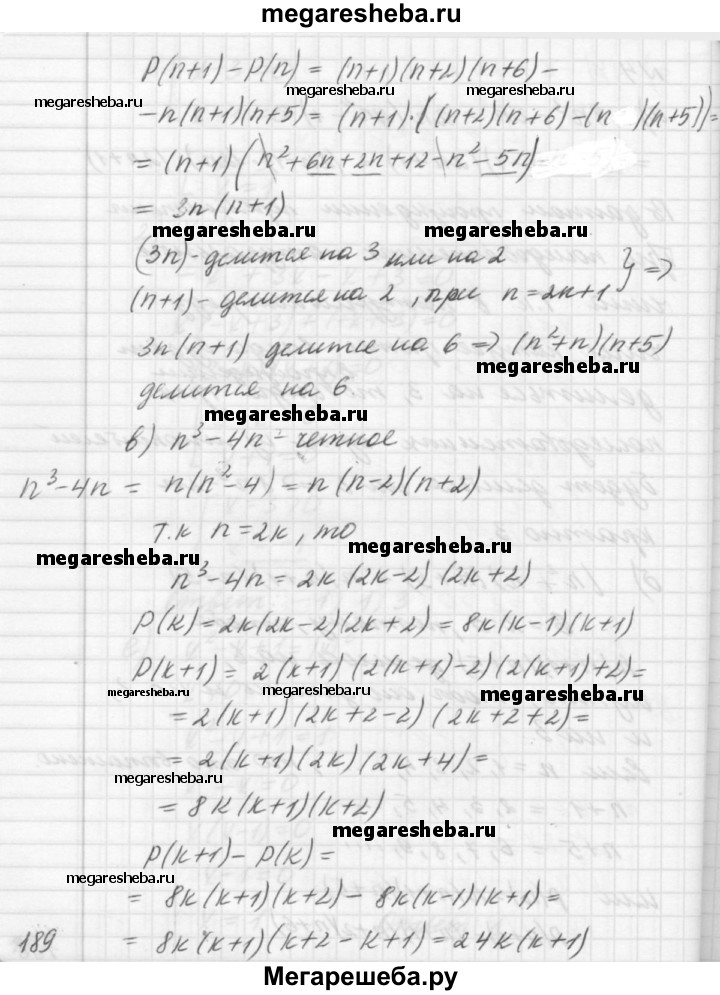 megaresheba.ru
P(n+1) - P(n) = (n+1)(n+2)(n+6) -
megaresheba.ru megaresheba.ru megaresheba.ru
- n(n+1)(n+5) = (n+1)·((n+2)(n+6) - (n )(n+5)) =
= (n+1)(n² + 6n + 2n + 12 - n² - 5n)
= 3n(n+1)
megaresheba.ru megaresheba.ru
(3n) - делится на 3 или на 2
(n+1) - делится на 2, при n = 2к+1 } ⇒
3n(n+1) делится на 6 ⇒ (n²+n)(n+5)
megaresheba.ru
делится на 6.
megaresheba.ru
в) n³ - 4n - четное
n³ - 4n = n(n² - 4) = n(n-2)(n+2)
т.к n = 2к, то
megaresheba.ru megaresheba.ru
n³ - 4n = 2к(2к-2)(2к+2)
P(к) = 2к(2к-2)(2к+2) = 8к(к-1)(к+1)
P(к+1) = 2(к+1)(2(к+1)-2)(2(к+1)+2) =
megaresheba.ru megaresheba.ru megaresheba.ru
= 2(к+1)(2к+2-2)(2к+2+2) =
= 2(к+1)(2к)(2к+4) =
megaresheba.ru
= 8к(к+1)(к+2)
megaresheba.ru
P(к+1) - P(к) =
megaresheba.ru
= 8к(к+1)(к+2) - 8к(к-1)(к+1) =
189 = 8к(к+1)(к+2-к+1) = 24к(к+1)
Мегарешеба.ру